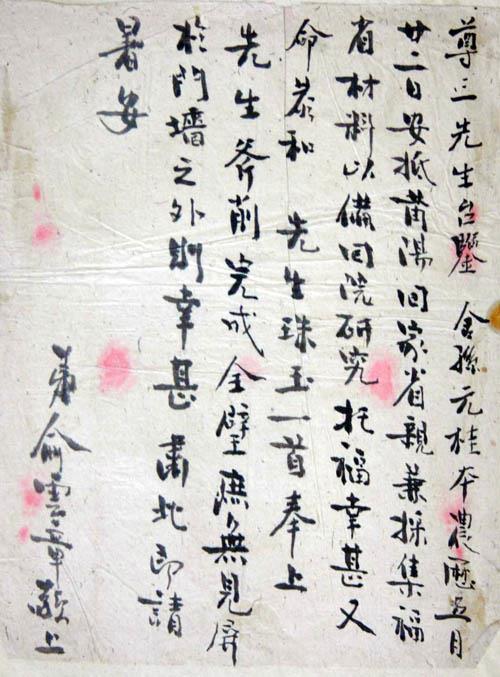 尊三先生台鑒 舍孫元桂本農歷五月
廿二日安抵莆陽回家省親兼採集福
省材料以備回院研究 托福幸甚又
命恭和 先生珠玉一首奉上
先生斧削完成全璧庶無見屏
於門墻之外則幸甚 肅此即請
暑安
弟俞雲章敬上